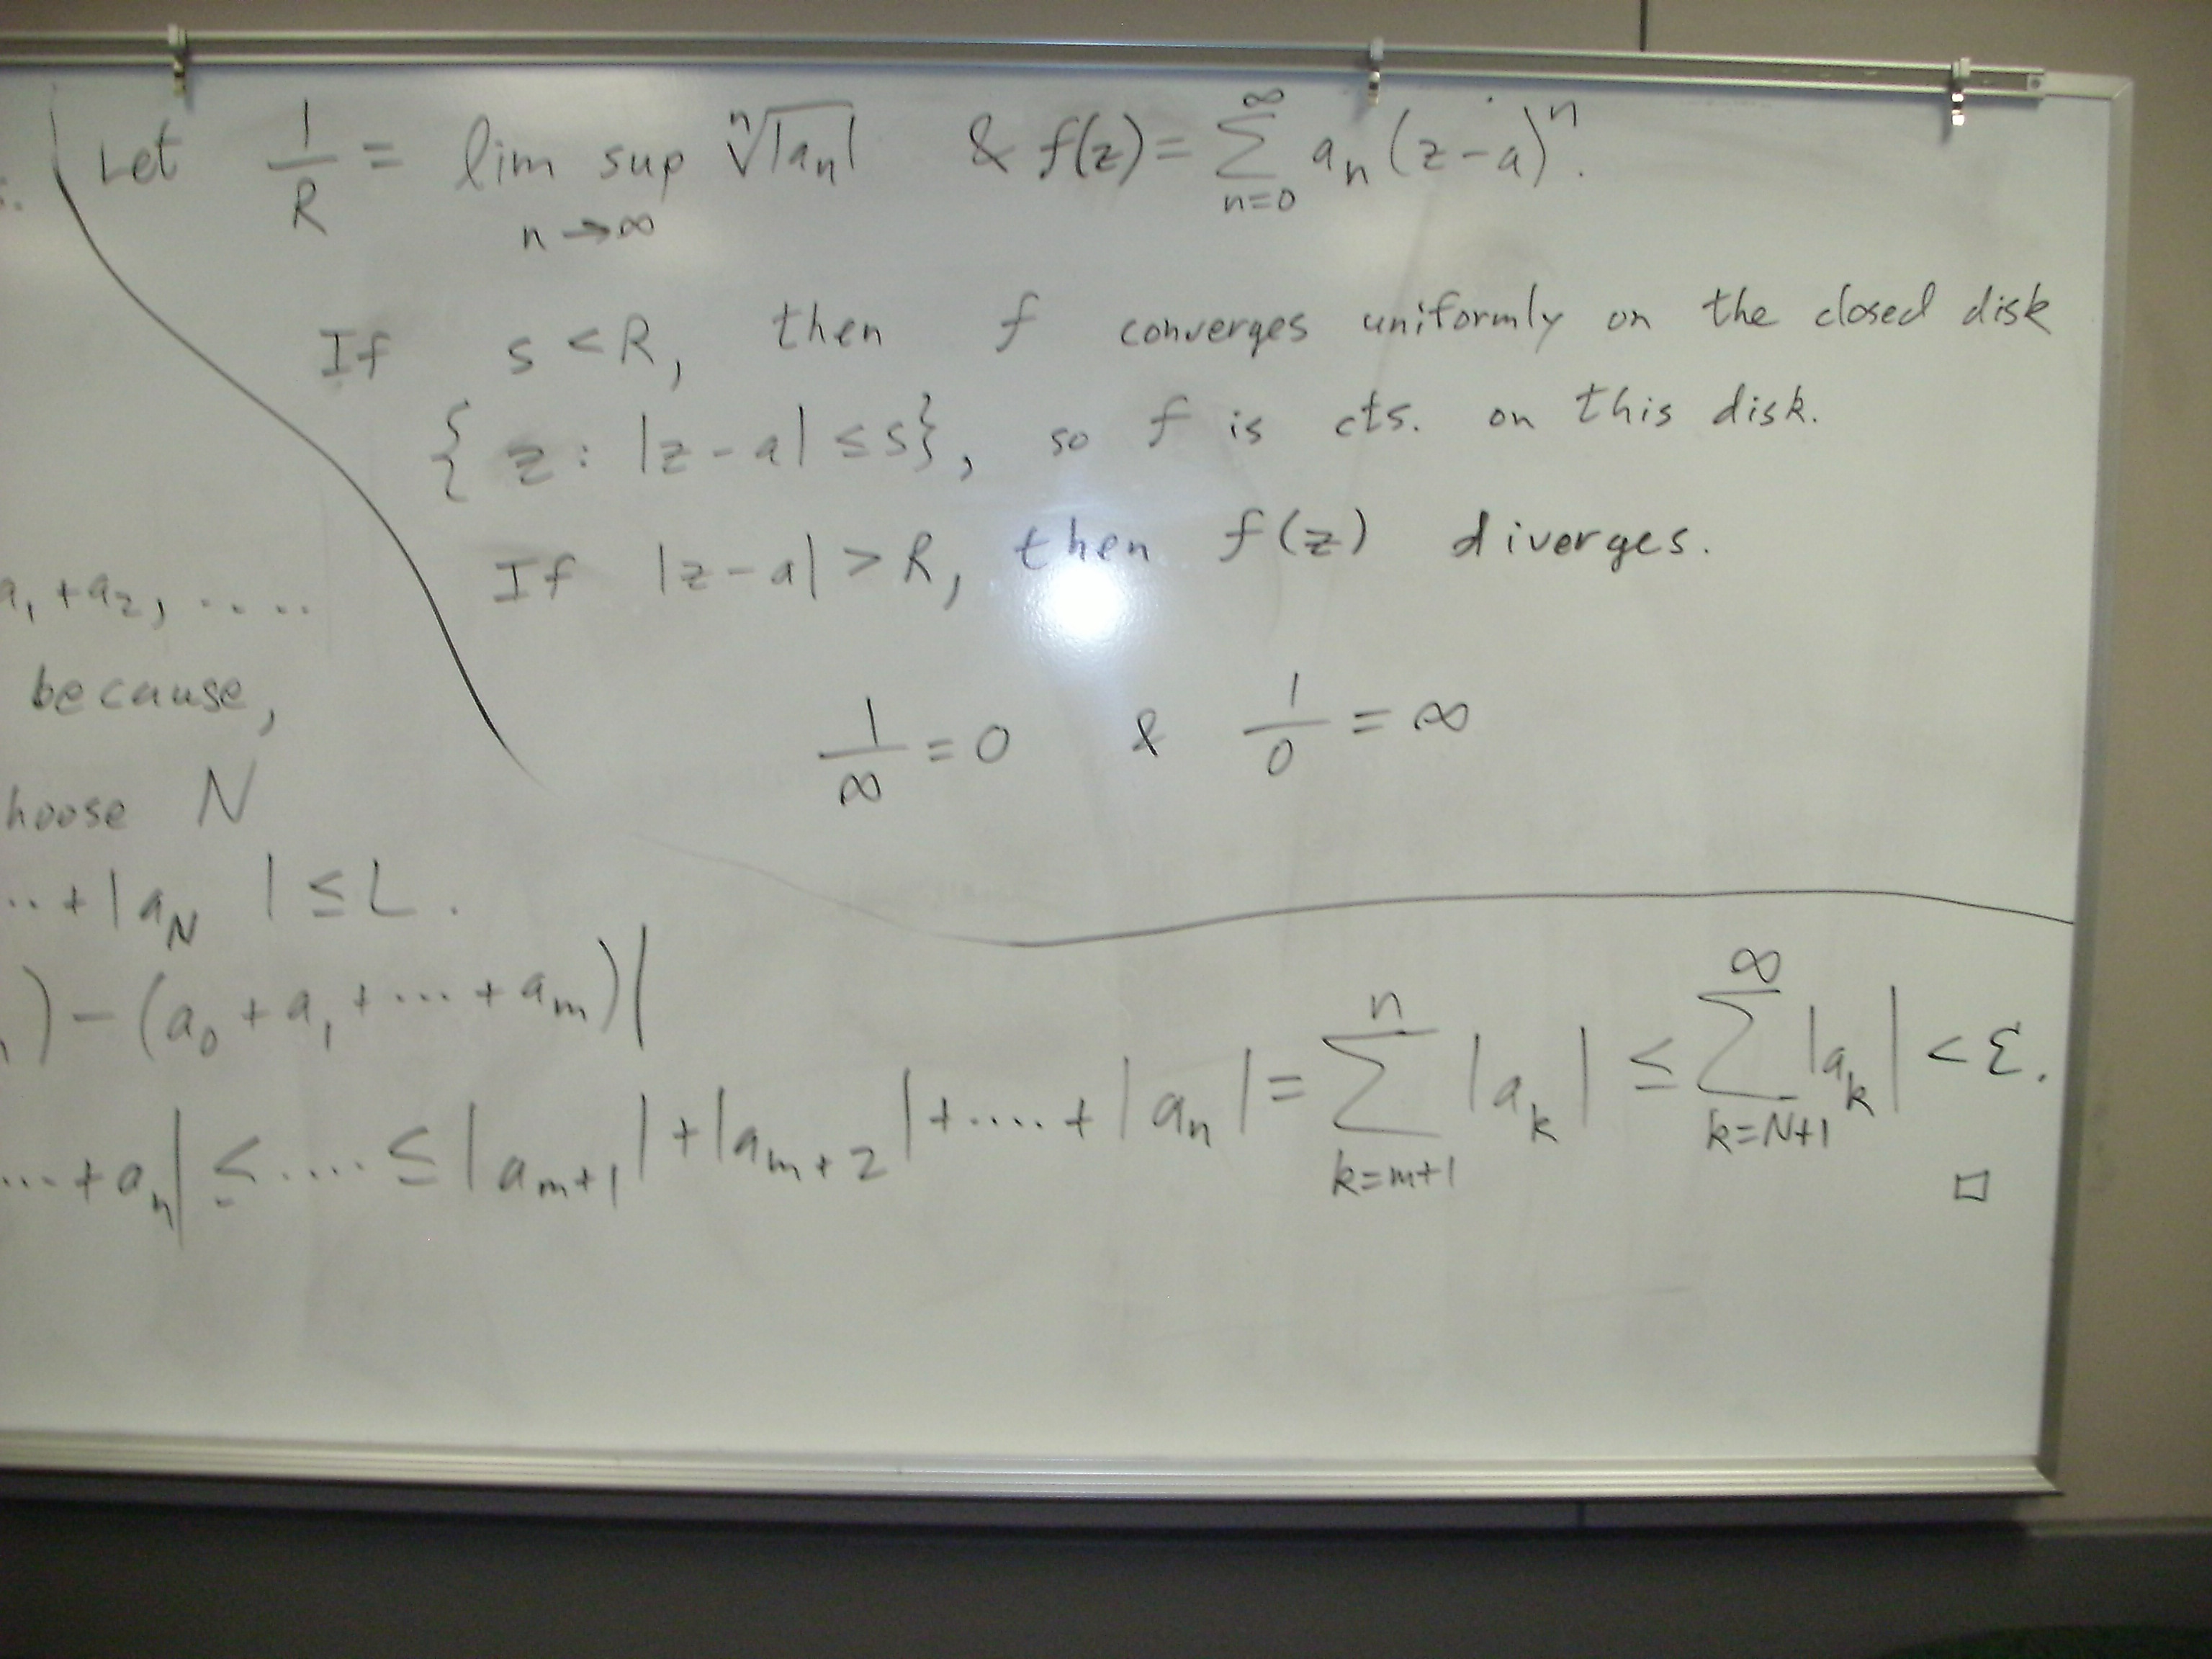 Let 1/R = lim sup n→∞ ⁿ√|aₙ| & f(z) = ∑_{n=0}^{∞} aₙ (z-a)ⁿ.
If s < R, then f converges uniformly on the closed disk
{ z : |z-a| ≤ s}, so f is cts. on this disk.
If |z-a| > R, then f(z) diverges.
1/∞ = 0 & 1/0 = ∞
s.
a₁ + a₂, ....
because,
hoose N
.. + |a_N | ≤ L.
) - (a₀ + a₁ + ... + a_m)|
... + aₙ| ≤ .... ≤ |a_{m+1}| + |a_{m+2}| + .... + |aₙ| = ∑_{k=m+1}^{n} |a_k| ≤ ∑_{k=N+1}^{∞} |a_k| < ε.
□